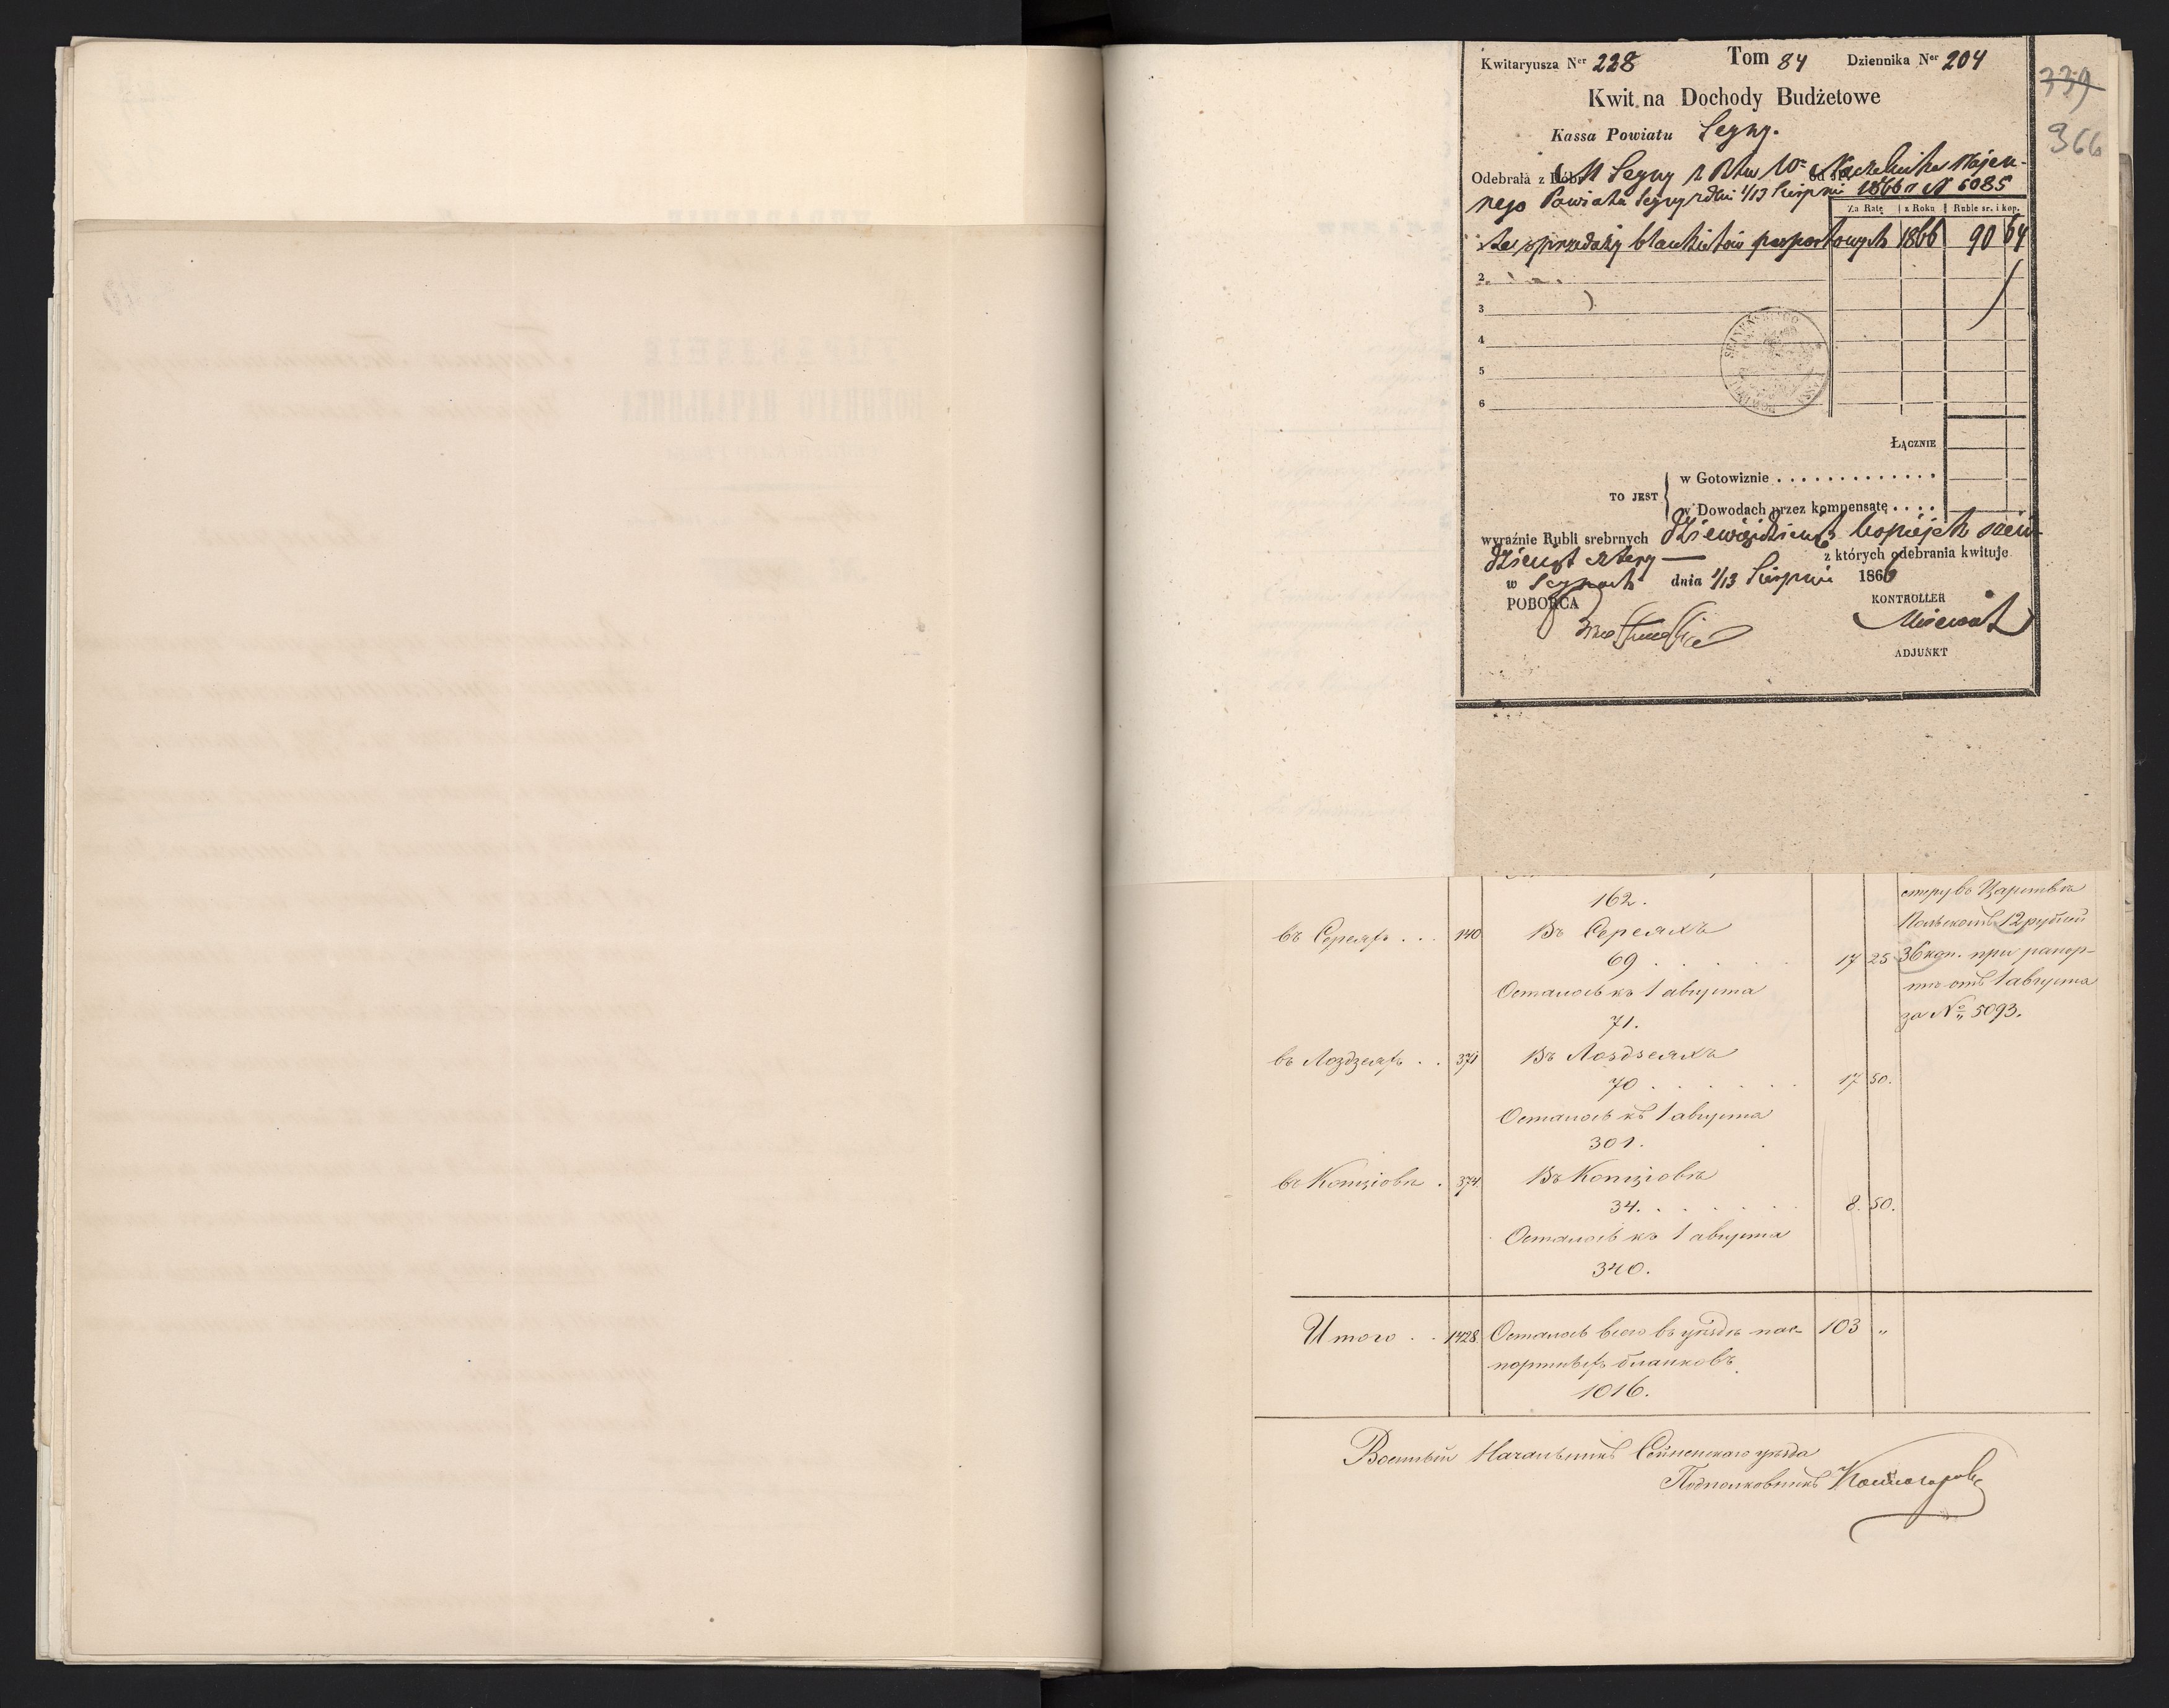 Kwitaryusza Ner 228 Tom 84 Dziennika Ner 204
339
366
Kwit na Dochody Budżetowe
Kassa Powiatu Segny.
Odebrała z Dóbr M Segny Naczelnika Wojen-
nego Powiatu Segny z dnia 1/13 Sierpnia 1866 r N 5085
Za Ratę z Roku Ruble sr. i kop.
za sprzedaży blankietów paszportowych 1866 90 64
2
3
4
5
6
ŁĄCZNIE
TO JEST
w Gotowiznie . . . . . . . . . . . . .
w Dowodach przez kompensatę . . . .
wyraźnie Rubli srebrnych Dziewięćdziesiąt kopiejek sześć-
dziesiąt cztery — z których odebrania kwituje
w Segnach dnia 1/13 Sierpnia 1866
POBORCA KONTROLLER
ADJUNKT
162.
въ Сереяхъ . . . 140 Въ Сереяхъ
69 . . . . . 17 25
Осталось къ 1 августа
71.
въ Лоздзеяхъ . . 371 Въ Лоздзеяхъ
70 . . . . . . 17 50.
Осталось къ 1 августа
301.
въ Копціовѣ . 374. Въ Копціовѣ
34. . . . . . . 8. 50.
Осталось къ 1 августа
340.
Царствѣ
Польскомъ 12 рублей
36 коп. при рапор-
тѣ отъ 1 августа
за № 5093.
Итого . . 1428. Осталось всего въ уѣздѣ пас- 103 "
портныхъ бланковъ
1016.
Военный Начальникъ Сейненскаго уѣзда
Подполковникъ